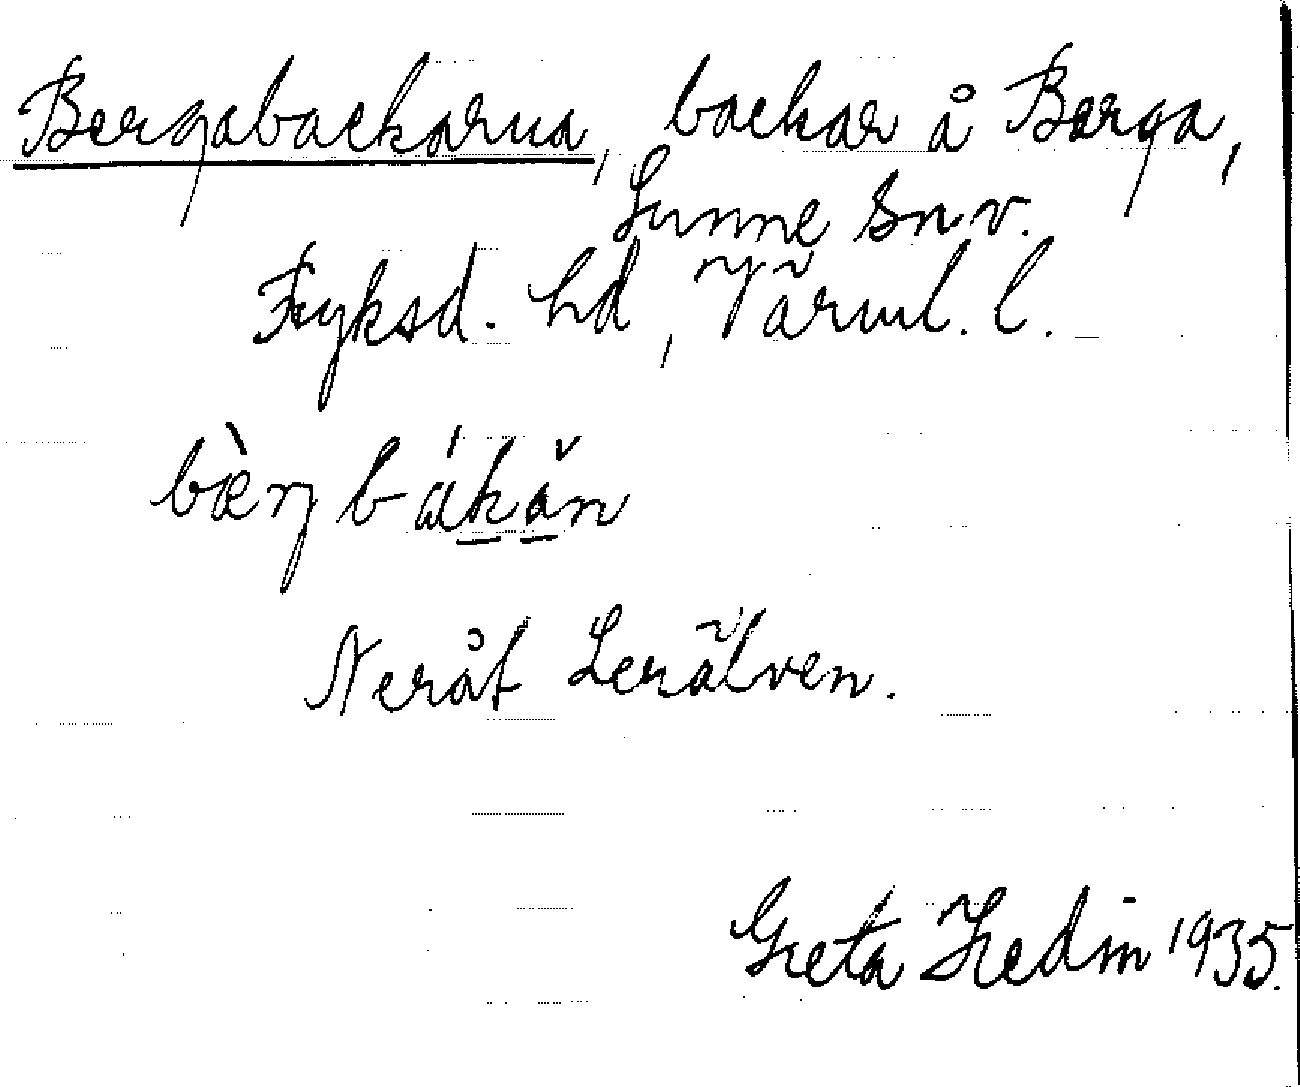 Bergabackarna, backar å Berga,
Sunne sn v.
Fryksd. hd, Värml. l.
bæ̀rj bákăn
Neråt Lerälven.
Greta Hedin 1935.